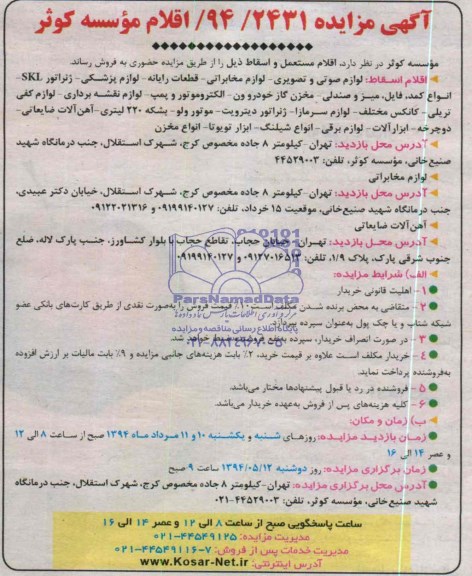 آگهی مزایده ۲۴۳۱/ ۹۴/ اقلام مؤسسه کوثر
مؤسسه کوثر در نظر دارد، اقلام مستعمل و اسقاط ذیل را از طریق مزایده حضوری به فروش رساند.
اقلام اسقاط: لوازم صوتی و تصویری- لوازم مخابراتی- قطعات رایانه- لوازم پزشکی- ژنراتور SKL-
انواع کمد، فایل، میز و صندلی- مخزن گاز خودرو ون- الکتروموتور و پمپ- لوازم نقشه برداری- لوازم کفی
تریلی- کانکس مختلف- لوازم سرمازا- ژنراتور دیترویت- موتور ولو- بشکه ۲۲۰ لیتری- آهن‌آلات ضایعاتی-
دوچرخه- ابزارآلات- لوازم برقی- انواع شیلنگ- ابزار تویوتا- انواع مخزن
آدرس محل بازدید: تهران- کیلومتر ۸ جاده مخصوص کرج، شهرک استقلال، جنب درمانگاه شهید
صنیع‌خانی، مؤسسه کوثر، تلفن: ۴۴۵۲۹۰۰۳
لوازم مخابراتی
آدرس محل بازدید: تهران- کیلومتر ۸ جاده مخصوص کرج، شهرک استقلال، خیابان دکتر عبیدی،
جنب درمانگاه شهید صنیع‌خانی، موقعیت ۱۵ خرداد، تلفن: ۰۹۱۹۹۱۴۰۱۲۷ و ۰۹۱۲۲۰۲۱۳۱۶
آهن آلات ضایعاتی
آدرس محل بازدید: تهران- خیابان حجاب، تقاطع حجاب با بلوار کشاورز، جنب پارک لاله، ضلع
جنوب شرقی پارک، پلاک ۱/۹، تلفن: ۰۹۱۲۷۰۱۶۵۱۳ و ۰۹۱۹۹۱۴۰۱۲۷
الف) شرایط مزایده:
۱- اهلیت قانونی خریدار
۲- متقاضی به محض برنده شدن مکلف است، ۱۰٪ قیمت فروش را به‌صورت نقدی از طریق کارت‌های بانکی عضو
شبکه شتاب و یا چک پول به‌عنوان سپرده بپردازد.
۳- در صورت انصراف خریدار، سپرده به‌نفع فروشنده ضبط خواهد شد.
۴- خریدار مکلف است علاوه بر قیمت خرید، ۲٪ بابت هزینه‌های جانبی مزایده و ۹٪ بابت مالیات بر ارزش افزوده
به‌فروشنده پرداخت نماید.
۵- فروشنده در رد یا قبول پیشنهادها مختار می‌باشد.
۶- کلیه هزینه‌های پس از فروش به‌عهده خریدار می‌باشد.
ب) زمان و مکان:
زمان بازدید مزایده: روزهای شنبه و یکشنبه ۱۰ و ۱۱ مرداد ماه ۱۳۹۴ صبح از ساعت ۸ الی ۱۲
و عصر ۱۴ الی ۱۶
زمان برگزاری مزایده: روز دوشنبه ۱۳۹۴/۰۵/۱۲ ساعت ۹ صبح
آدرس محل برگزاری مزایده: تهران- کیلومتر ۸ جاده مخصوص کرج، شهرک استقلال، جنب درمانگاه
شهید صنیع خانی، مؤسسه کوثر، تلفن: ۴۴۵۲۹۰۰۳-۰۲۱
ساعت پاسخگویی صبح از ساعت ۸ الی ۱۲ و عصر ۱۴ الی ۱۶
مدیریت مزایده: ۴۴۵۴۹۱۲۵-۰۲۱
مدیریت خدمات پس از فروش: ۷-۴۴۵۴۹۱۱۶-۰۲۱
آدرس اینترنتی: www.Kosar-Net.ir
ParsNamadData
پایگاه اطلاع رسانی مناقصه و مزایده